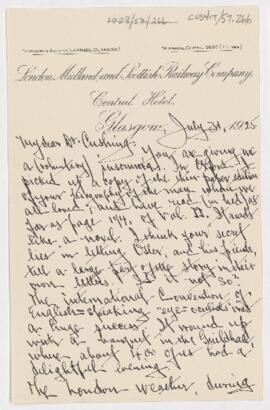 1028/52/266
CUS417/57.266
London Midland and Scottish Railway Company.
Central Hotel.
Glasgow, July 31, 1925
My dear Dr. Cushing: You are giving me
a voluntary insomnia. In Oxford I
picked up a copy of the thin paper edition
of your biography of the man whom we
all loved, and have read (in bed) as
far as page 144, of Vol. II. It reads
like a novel. I think your secret
lies in letting Osler, and his friends,
tell a large part of the story in their
own letters. Is it not so?
The International Convention of
English-speaking "eye-oculists" was
a huge success. It wound up
with a banquet in the Guildhall,
where about 400 of us had a
delightful evening.
The London weather, during